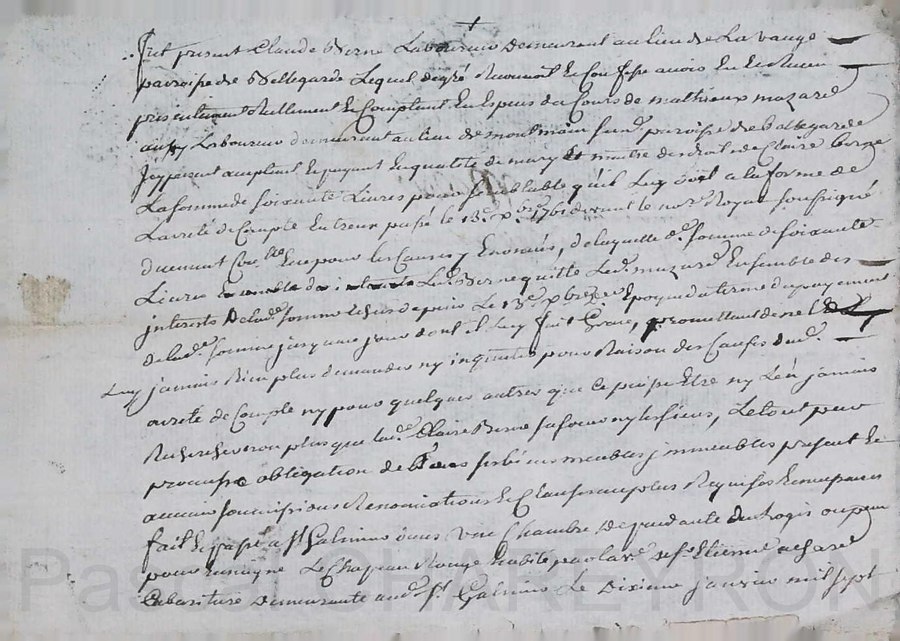 +
fut present Claude Berne Laboureur demeurant au lieu de La vauge
paroisse de Bellegarde Lequel de gré Reconnoit Et Confesse avoir Eu Et Receu
presentement Reellement Et Comptant En Especes du Cours de mathieux mazard
aussy Laboureur demeurant au lieu de montmain susd. paroisse de bellegarde
Icy present acceptant Et payant En qualité de mary Et maitre des droits de Claire berne
La somme de soixante Livres pour semblable qu'il Luy doit a la forme de
L'areté de Compte Entreux passé le 13e xbre 1761 devant le nore Royal soussigné
duement Con.lé Et pour les Causes y Enoncés, de laquelle d. somme de soixante
Livres Led. Berne quitte Led. mazard Ensemble des
interests de lad. somme Echus depuis Le 13e xbre du payement
de lad. somme jusqu'a ce jour dont il Luy fait Grace, promettant de ne
Luy jamais Rien plus demander ny inquieter pour Raison des Causes dud.
areté de Compte ny pour quelques autres que ce puisse Etre ny L'en jamais
Rechercher non plus que lad. Claire Berne sa soeur ny les siens, Le tout pour
promesse obligation de Biens meubles immeubles present Et
avenir soumissions Renonciations Et Clauses plus Requises
fait Et passé a St Galmier dans Une Chambre dependante du Logis ou pend
pour enseigne Le Chapeau Rouge habité par la ve de sr Etienne achard
Cabaretiere demeurante aud. St Galmier Le Dixieme janvier mil sept
Pascal CHAREYRON